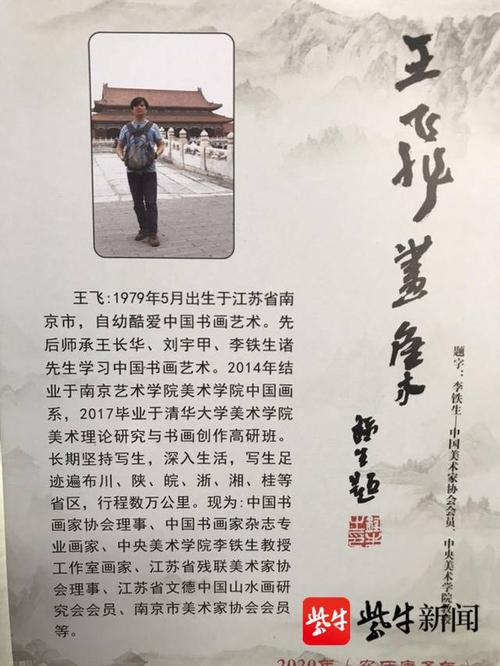 王飞:1979年5月出生于江苏省南
京市，自幼酷爱中国书画艺术。先
后师承王长华、刘宇甲、李铁生诸
先生学习中国书画艺术。2014年结
业于南京艺术学院美术学院中国画
系，2017毕业于清华大学美术学院
美术理论研究与书画创作高研班。
长期坚持写生，深入生活，写生足
迹遍布川、陕、皖、浙、湘、桂等
省区，行程数万公里。现为:中国书
画家协会理事、中国书画家杂志专
业画家、中央美术学院李铁生教授
工作室画家、江苏省残联美术家协
会理事、江苏省文德中国山水画研
究会会员、南京市美术家协会会员
等。
王飞
铁生题
题字：李铁生——中国美术家协会会员、中央美术学院
紫牛
紫牛新闻
2020年